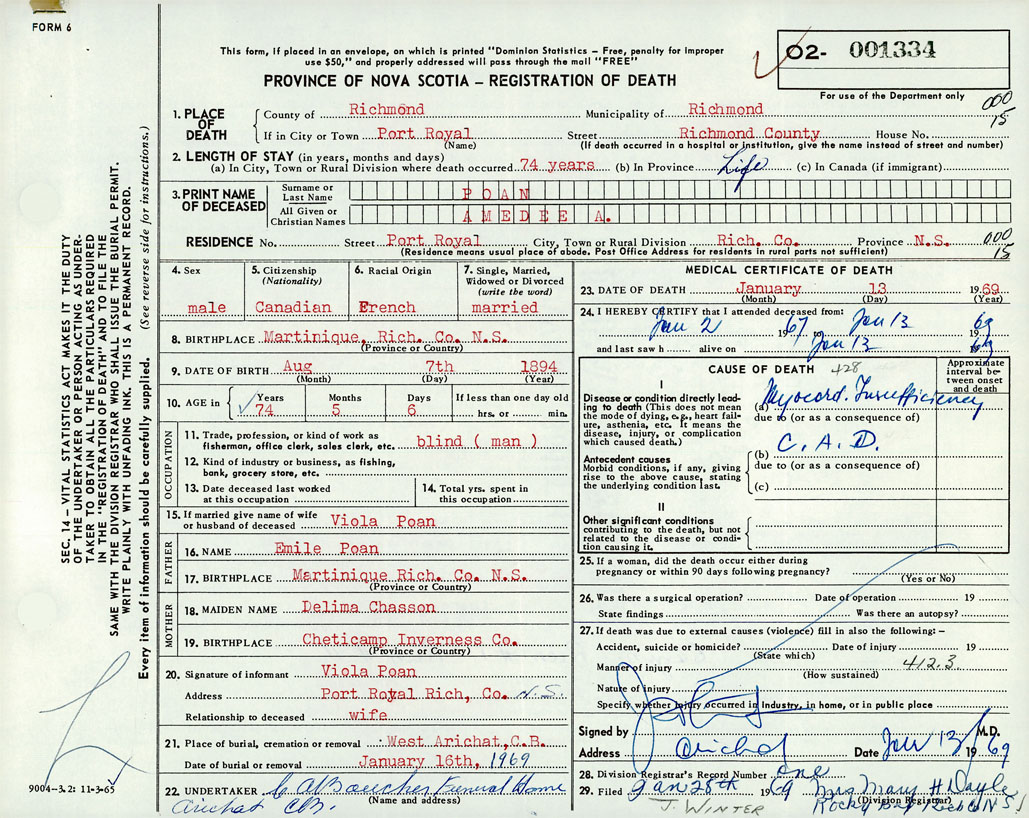 FORM 6
This form, if placed in an envelope, on which is printed "Dominion Statistics – Free, penalty for improper
use $50," and properly addressed will pass through the mail "FREE"
O2- 001334
For use of the Department only
PROVINCE OF NOVA SCOTIA – REGISTRATION OF DEATH
1. PLACE OF DEATH County of Richmond Municipality of Richmond 000
If in City or Town Port Royal Street Richmond County House No. 15
(Name) (If death occurred in a hospital or institution, give the name instead of street and number)
2. LENGTH OF STAY (in years, months and days)
(a) In City, Town or Rural Division where death occurred 74 years (b) In Province Life (c) In Canada (if immigrant)
3. PRINT NAME OF DECEASED Surname or Last Name POAN
All Given or Christian Names AMEDEE A.
RESIDENCE No. Street Port Royal City, Town or Rural Division Rich. Co. Province N.S. 000
(Residence means usual place of abode. Post Office Address for residents in rural parts not sufficient) 15
4. Sex 5. Citizenship (Nationality) 6. Racial Origin 7. Single, Married, Widowed or Divorced (write the word)
male Canadian French married
8. BIRTHPLACE Martinique, Rich. Co. N.S.
(Province or Country)
9. DATE OF BIRTH Aug 7th 1894
(Month) (Day) (Year)
10. AGE in Years Months Days If less than one day old
74 5 6 hrs. or min.
OCCUPATION
11. Trade, profession, or kind of work as
fisherman, office clerk, sales clerk, etc. blind ( man )
12. Kind of industry or business, as fishing,
bank, grocery store, etc.
13. Date deceased last worked
at this occupation
14. Total yrs. spent in
this occupation
15. If married give name of wife
or husband of deceased Viola Poan
FATHER
16. NAME Emile Poan
17. BIRTHPLACE Martinique Rich. Co. N.S.
(Province or Country)
MOTHER
18. MAIDEN NAME Delima Chasson
19. BIRTHPLACE Cheticamp Inverness Co.
(Province or Country)
20. Signature of informant Viola Poan
Address Port Royal Rich, Co. N.S.
Relationship to deceased wife
21. Place of burial, cremation or removal West Arichat, C.B.
Date of burial or removal January 16th, 1969
22. UNDERTAKER C A Boucher Funeral Home
(Name and address)
Arichat CB.
MEDICAL CERTIFICATE OF DEATH
23. DATE OF DEATH January 13 1969
(Month) (Day) (Year)
24. I HEREBY CERTIFY that I attended deceased from:
Jan 2 1967 to Jan 13 69
and last saw h alive on Jan 13 69
CAUSE OF DEATH 428
Approximate interval between onset and death
I
Disease or condition directly leading
to death (This does not mean
the mode of dying, e.g., heart failure,
asthenia, etc. It means the
disease, injury, or complication
which caused death.)
(a) Myocard. Insufficiency
due to (or as a consequence of)
C. A. D.
Antecedent causes
Morbid conditions, if any, giving
rise to the above cause, stating
the underlying condition last.
(b)
due to (or as a consequence of)
(c)
II
Other significant conditions
contributing to the death, but not
related to the disease or condition
causing it.
25. If a woman, did the death occur either during
pregnancy or within 90 days following pregnancy?
(Yes or No)
26. Was there a surgical operation? Date of operation 19
State findings Was there an autopsy?
27. If death was due to external causes (violence) fill in also the following: –
Accident, suicide or homicide? Date of injury 19
(State which)
Manner of injury 412.3
(How sustained)
Nature of injury
Specify whether injury occurred in industry, in home, or in public place
Signed by M.D.
Address Arichat Date Jan 13 1969
28. Division Registrar's Record Number one
29. Filed Jan 28th 1969 Mrs Mary H Doyle
(Division Registrar)
J. WINTER Rocky Bay Rich Co N S
SEC. 14 – VITAL STATISTICS ACT MAKES IT THE DUTY
OF THE UNDERTAKER OR PERSON ACTING AS UNDER-
TAKER TO OBTAIN ALL THE PARTICULARS REQUIRED
IN THE "REGISTRATION OF DEATH" AND TO FILE THE
SAME WITH THE DIVISION REGISTRAR WHO SHALL ISSUE THE BURIAL PERMIT.
WRITE PLAINLY WITH UNFADING INK. THIS IS A PERMANENT RECORD.
Every item of information should be carefully supplied. (See reverse side for instructions.)
9004-3.2: 11-3-65